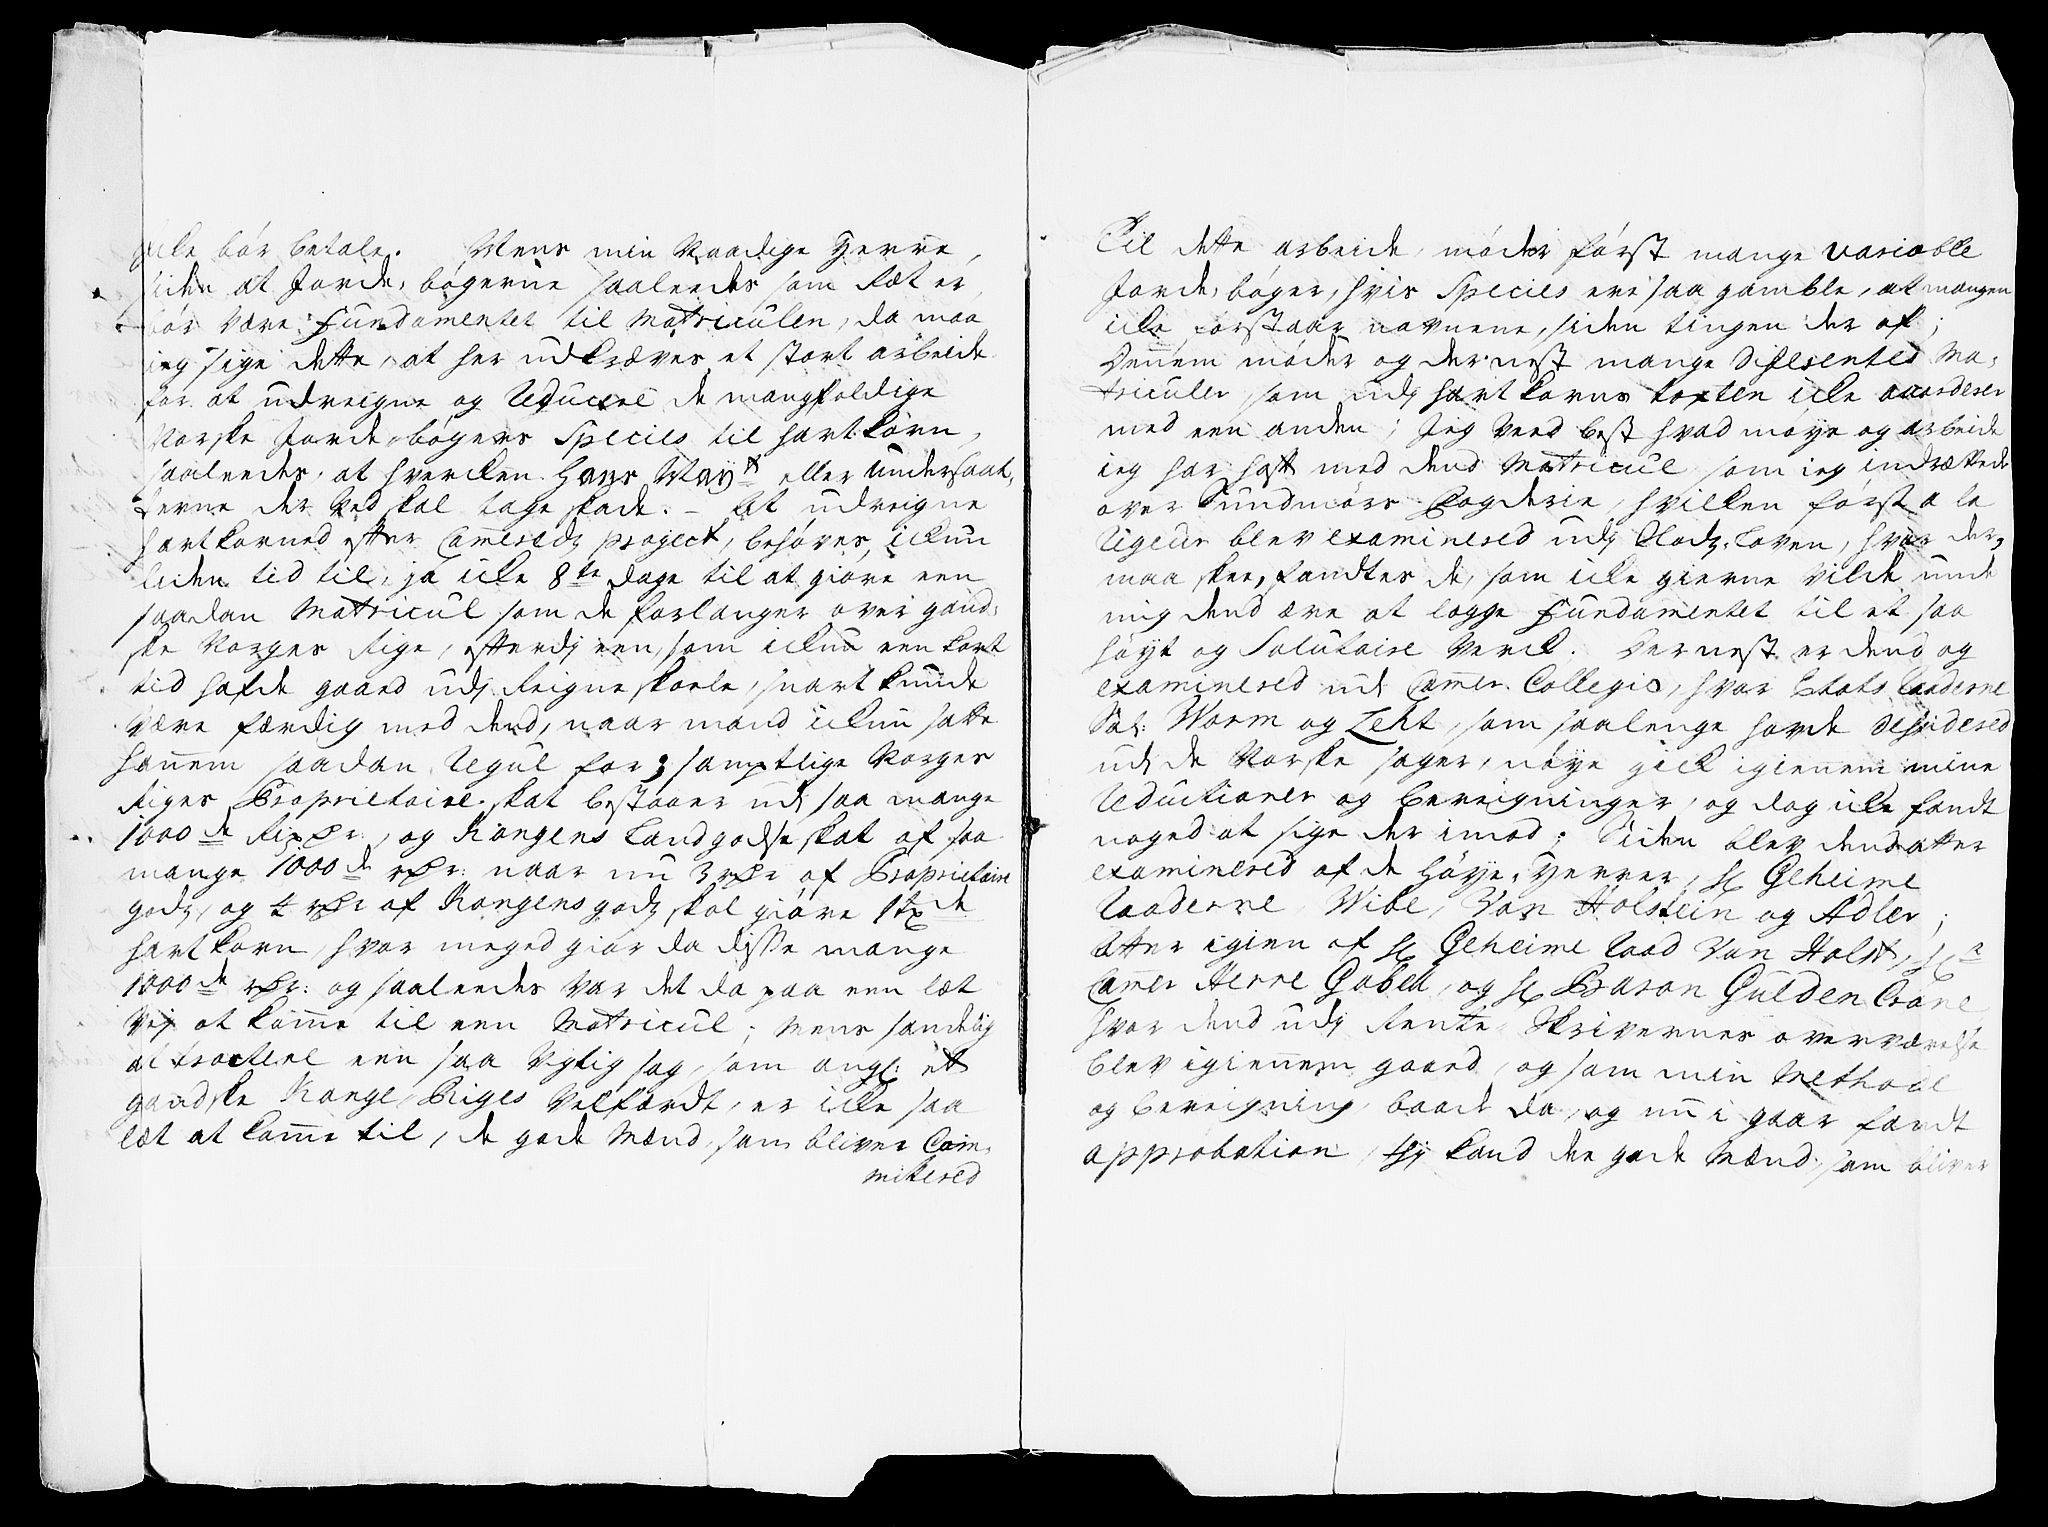 icke bör betale. Mens min Naadige Herre,
siden at Jorde-bögerne saaledes som sæt er,
bör være Fundamentet til Matriculen, da maa
ieg sige dette, at her udkræves et stort arbeide
for at udreigne og Reducere de mangfoldige
Norske Jorde-bögers Species til hartkorn,
saaledes, at hvercken Hans Mayt eller Undersaat-
terne der ved skal tage skade. – At udreigne
hartkorned efter Cameredz project, behöves ickun
liden tid til, ja icke 8te dage til at giöre een
saadan Matricul som de forlanger over gand-
ske Norges Rige, efterdj een, som ickun een kort
tid hafde gaaed udj Reigneskoele, snart kunde
være færdig med dend, naar mand ickun satte
hannem saadan Regul for; samptlige Norges
Riges Proprietaire-skat bestaaer udj saa mange
1000de Rixdr:, og Kongens Landgodse skat af saa
mange 1000de rdr: naar nu 3 rdr af Proprietaire
godz, og ½ rdr af Kongens godz skal giöre 1 tde
hartkorn, hvor meged giör da disse mange
1000de rdr: og saaledes var det da paa een læt
vej at komme til een Matricul; Mens sandelig
at tractere een saa vigtig sag, som angl: ett
gandske Konge-Riges velfærdt, er icke saa
læt at komme til, de gode Mænd, som bliver Com-
mittered
Til dette arbeide, möder först mange variable
Jorde-böger, hvis Species ere saa gamble, at mangen
icke forstaar navnene, siden tingen der af;
Dennem möder og dernest mange Differented Ma-
triculer, som udj hartkorns taxten icke accorderer
med een anden; Jeg veed best hvad möye og arbeide
ieg har haft med dend Matricul som ieg indrættede
over Sundmörs Fogderie, hvilken först a la
Rigeur blev examinered udj Slodz-Loven, hvor der,
maa skee, fandtes de, som icke gierne vilde unde
mig dend ære at legge Fundamentet til et saa
höyt og Salutaire verck. Dernest er dend og
examinered udj Cammer-Collegio, hvor Etats Raaderne
Sal: Worm og Zeht, som saalenge havde
udj de Norske sager, nöye gick igiennem mine
Reductioner og bereigninger, og dog icke fandt
noged at sige der imod; Siden blev dend atter
examinered af de höye Herrer, Hr Geheime
Raaderne, Wibe, Von Holstein og Adler;
Atter igien af Hr Geheime Raad Von Holst, Hr
Camer Herre Gabell, og Hr Baron Gulden Crone
hvor dend udj Rente-Skrivernes overværelse
blev igiennem gaaed, og som min Methode
og bereigning, baade da, og nu i gaar fandt
approbation, thj kand de gode Mænd, som bliver